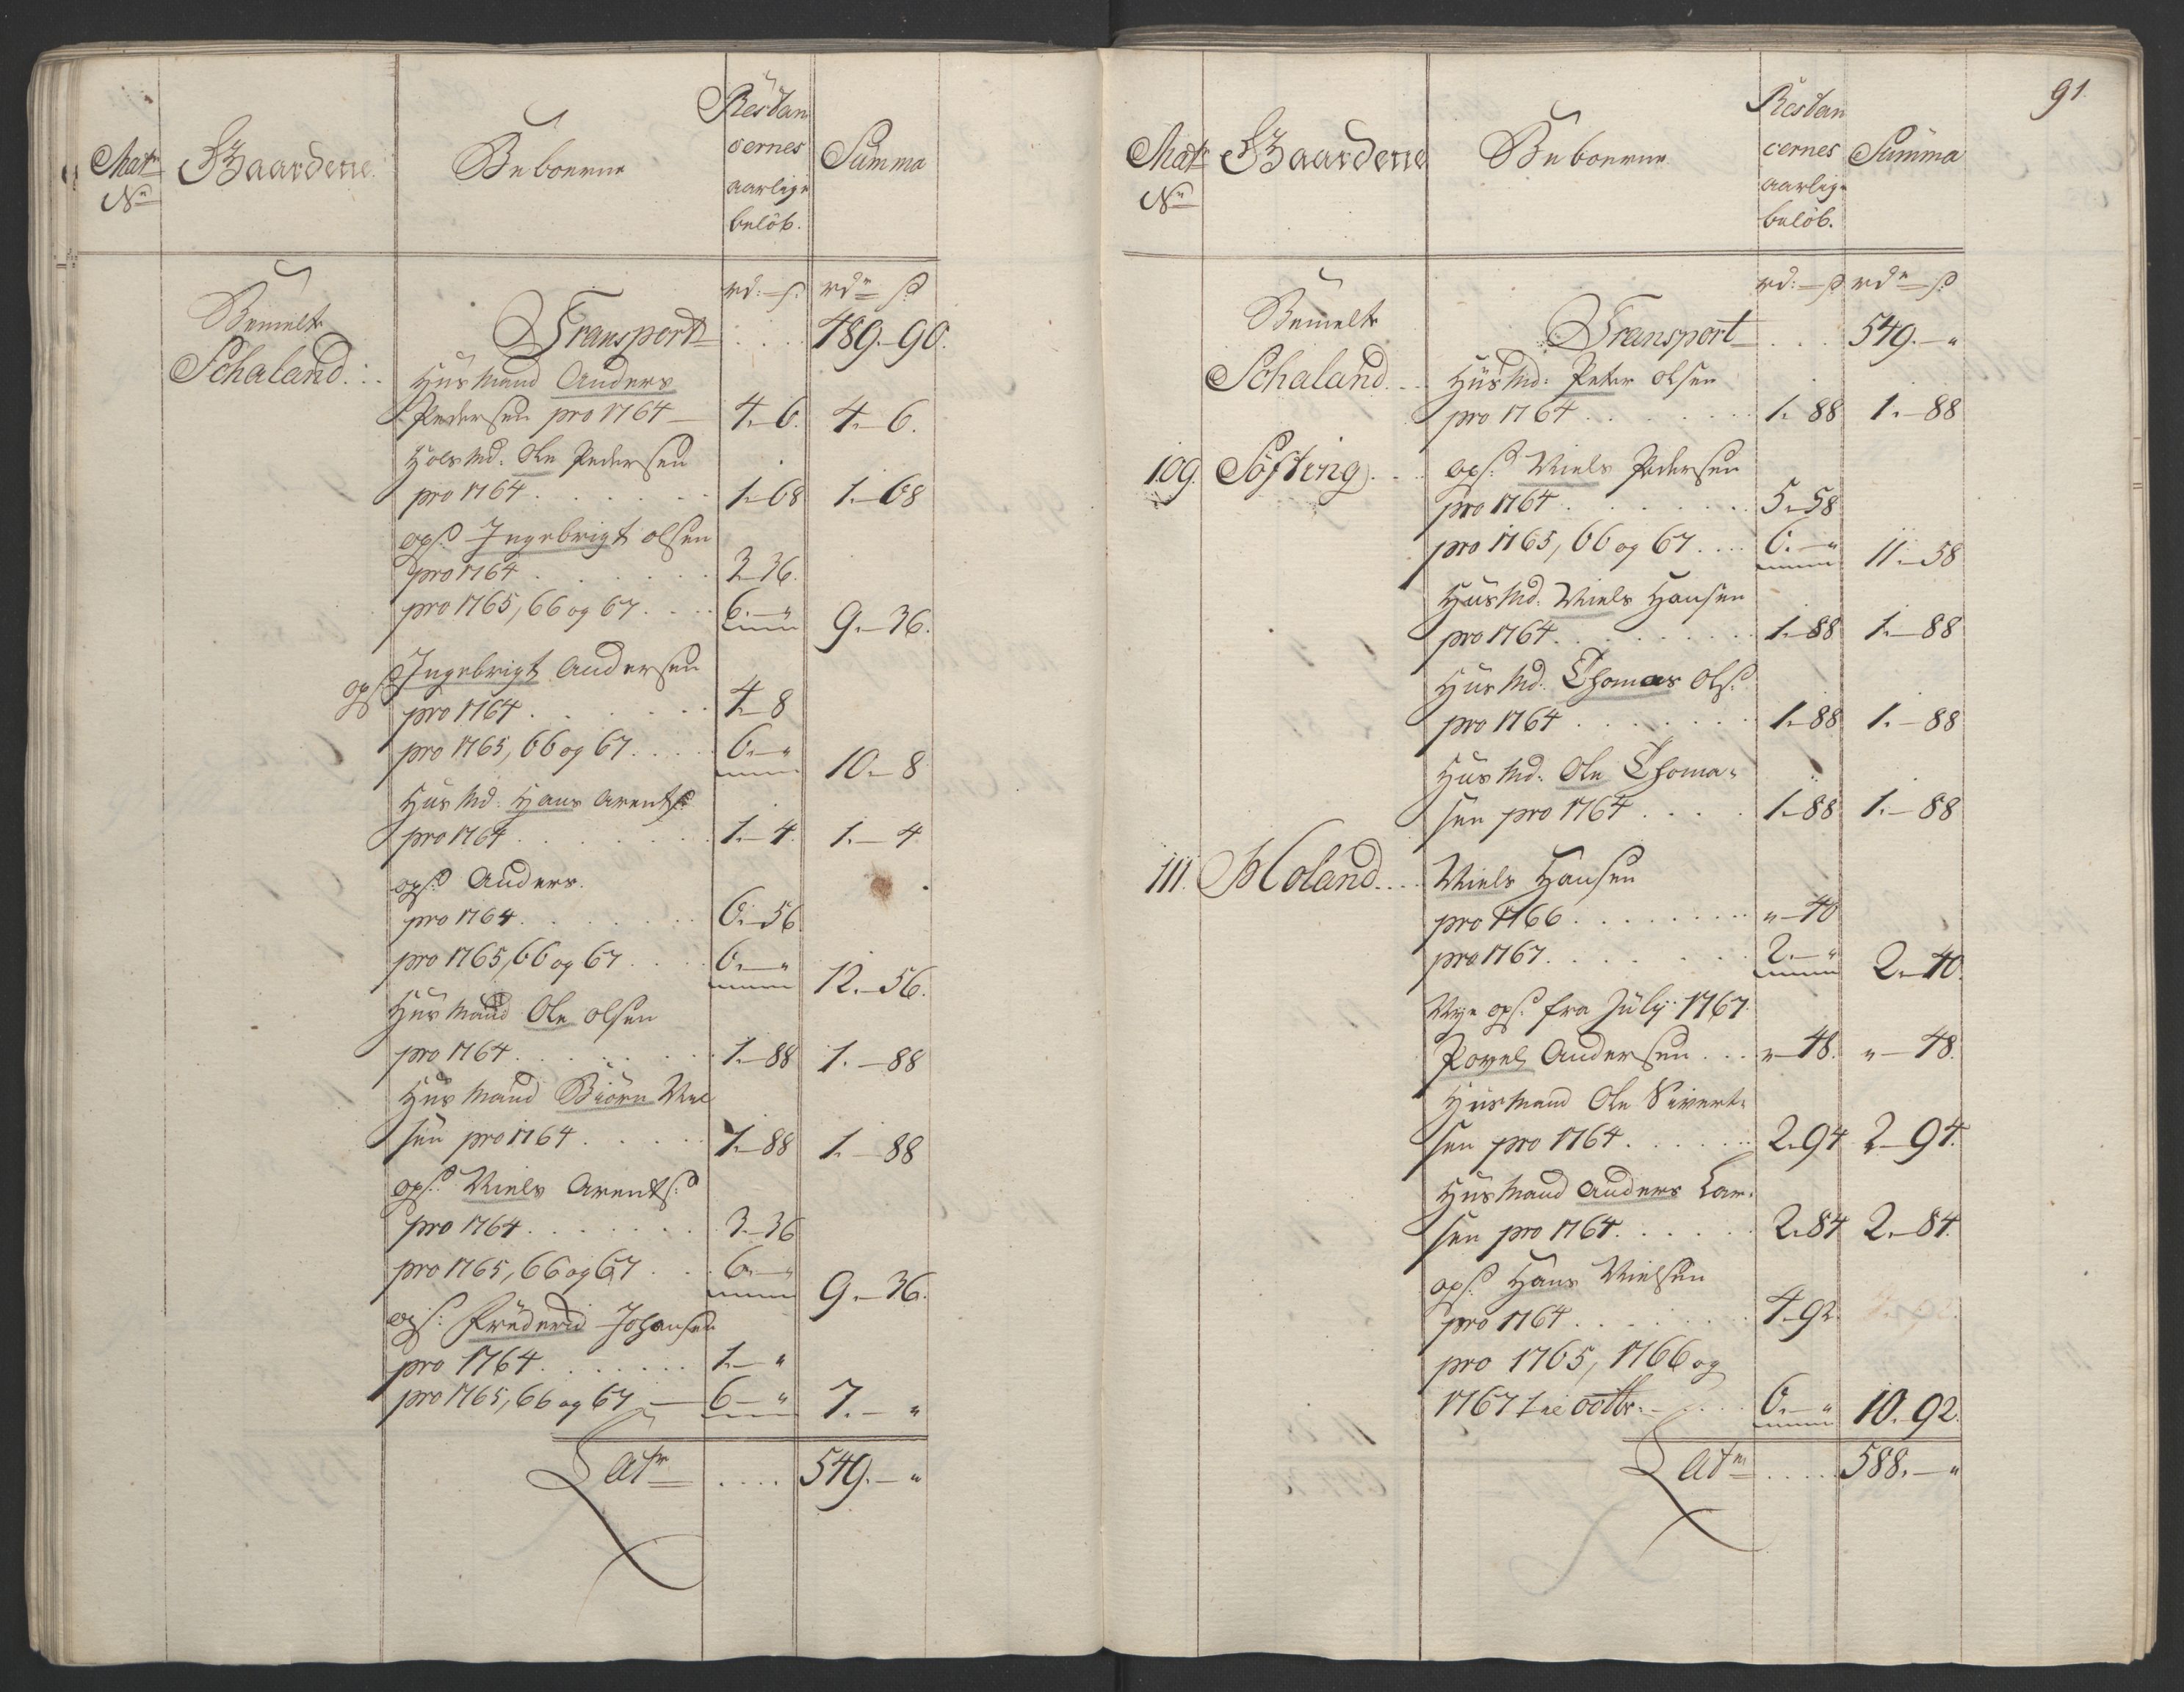 Mat:
No
Gaardene
Beboerne
Restan
cernes
aarlige
beløb.
Summa
rd: - s:
rdr - s
Bemelte
Schaland . . .
Transport . . . . 489.-90.
Huusmand Anders
Pedersen pro 1764 - 4.-6. 4.-6.
Huusmd. Ole Pedersen
pro 1764 . . . . . . 1.-68 1.-68
ops. Ingebrigt olsen
pro 1764 . . . . . . 3-36.
pro 1765, 66 og 67 . . . . 6.-" 9.-36.
ops. Ingebrigt Andersen
pro 1764 . . . . . . 4-8
pro 1765, 66 og 67 . . . . 6.-" 10.-8
Huusmd: Hans Arents:
pro 1764 . . . . . . . 1.-4. 1.-4
ops. Anders.
pro 1764 . . . . . . . 6.-56
pro 1765, 66 og 67 . . . . 6.-" 12.-56.
Huusmand Ole olsen
pro 1764 . . . . . . . 1.-88 1.-88
Huusmand Biörn Niel
sen pro 1764 . . . . . 1.-88 1.-88
ops. Niels Arents:
pro 1764 . . . . . . 3-36
pro 1765, 66 og 67 . . . 6.-" 9.-36.
ops: Friderid Johansen
pro 1764 . . . . . . 1.-"
pro 1765, 66 og 67 - 6-" 7.-"
Latr . . . . 549.-"
91.
Mat:
No
Gaardene
Beboerne
Restan
cernes
aarlige
beløb.
Summa
rd: - s
rdr - s
Bemelte
Schaland . . .
Transport . . . 549.-"
Huusmd: Peter olsen
pro 1764 . . . . . . . 1.-88 1.-88
109. Söfting . . . ops. Niels Pedersen
pro 1764 . . . . . . . 5.-58
pro 1765, 66 og 67 . . . 6.-" 11.-58
Huusmd. Niels Hansen
pro 1764 . . . . . . . 1.-88 1.-88
Huusmd. Thomas Ols:
pro 1764 . . . . . . . 1.-88 1.-88
Huusmd: Ole Thoma-
sen pro 1764 . . . . 1.-88 1.-88
111. Holand . . . . Niels Hansen
pro 1766 . . . . . . . . "-40
pro 1767 . . . . . . . 2.-" 2.-40.
Nye ops. fra July 1767.
Povel Andersen . . . "-48. "-48.
Huusmand Ole Sivert-
sen pro 1764 . . . . . . 2.94 2-94.
Huusmand Anders Lar-
sen pro 1764 . . . . . . 2.84 2.-84.
ops. Hans Nielsen
pro 1764 . . . . . . 4.-92.
pro 1765, 1766 og
1767 octbr. . . . 6.-" 10.-92.
Latr . . . . 588.-"